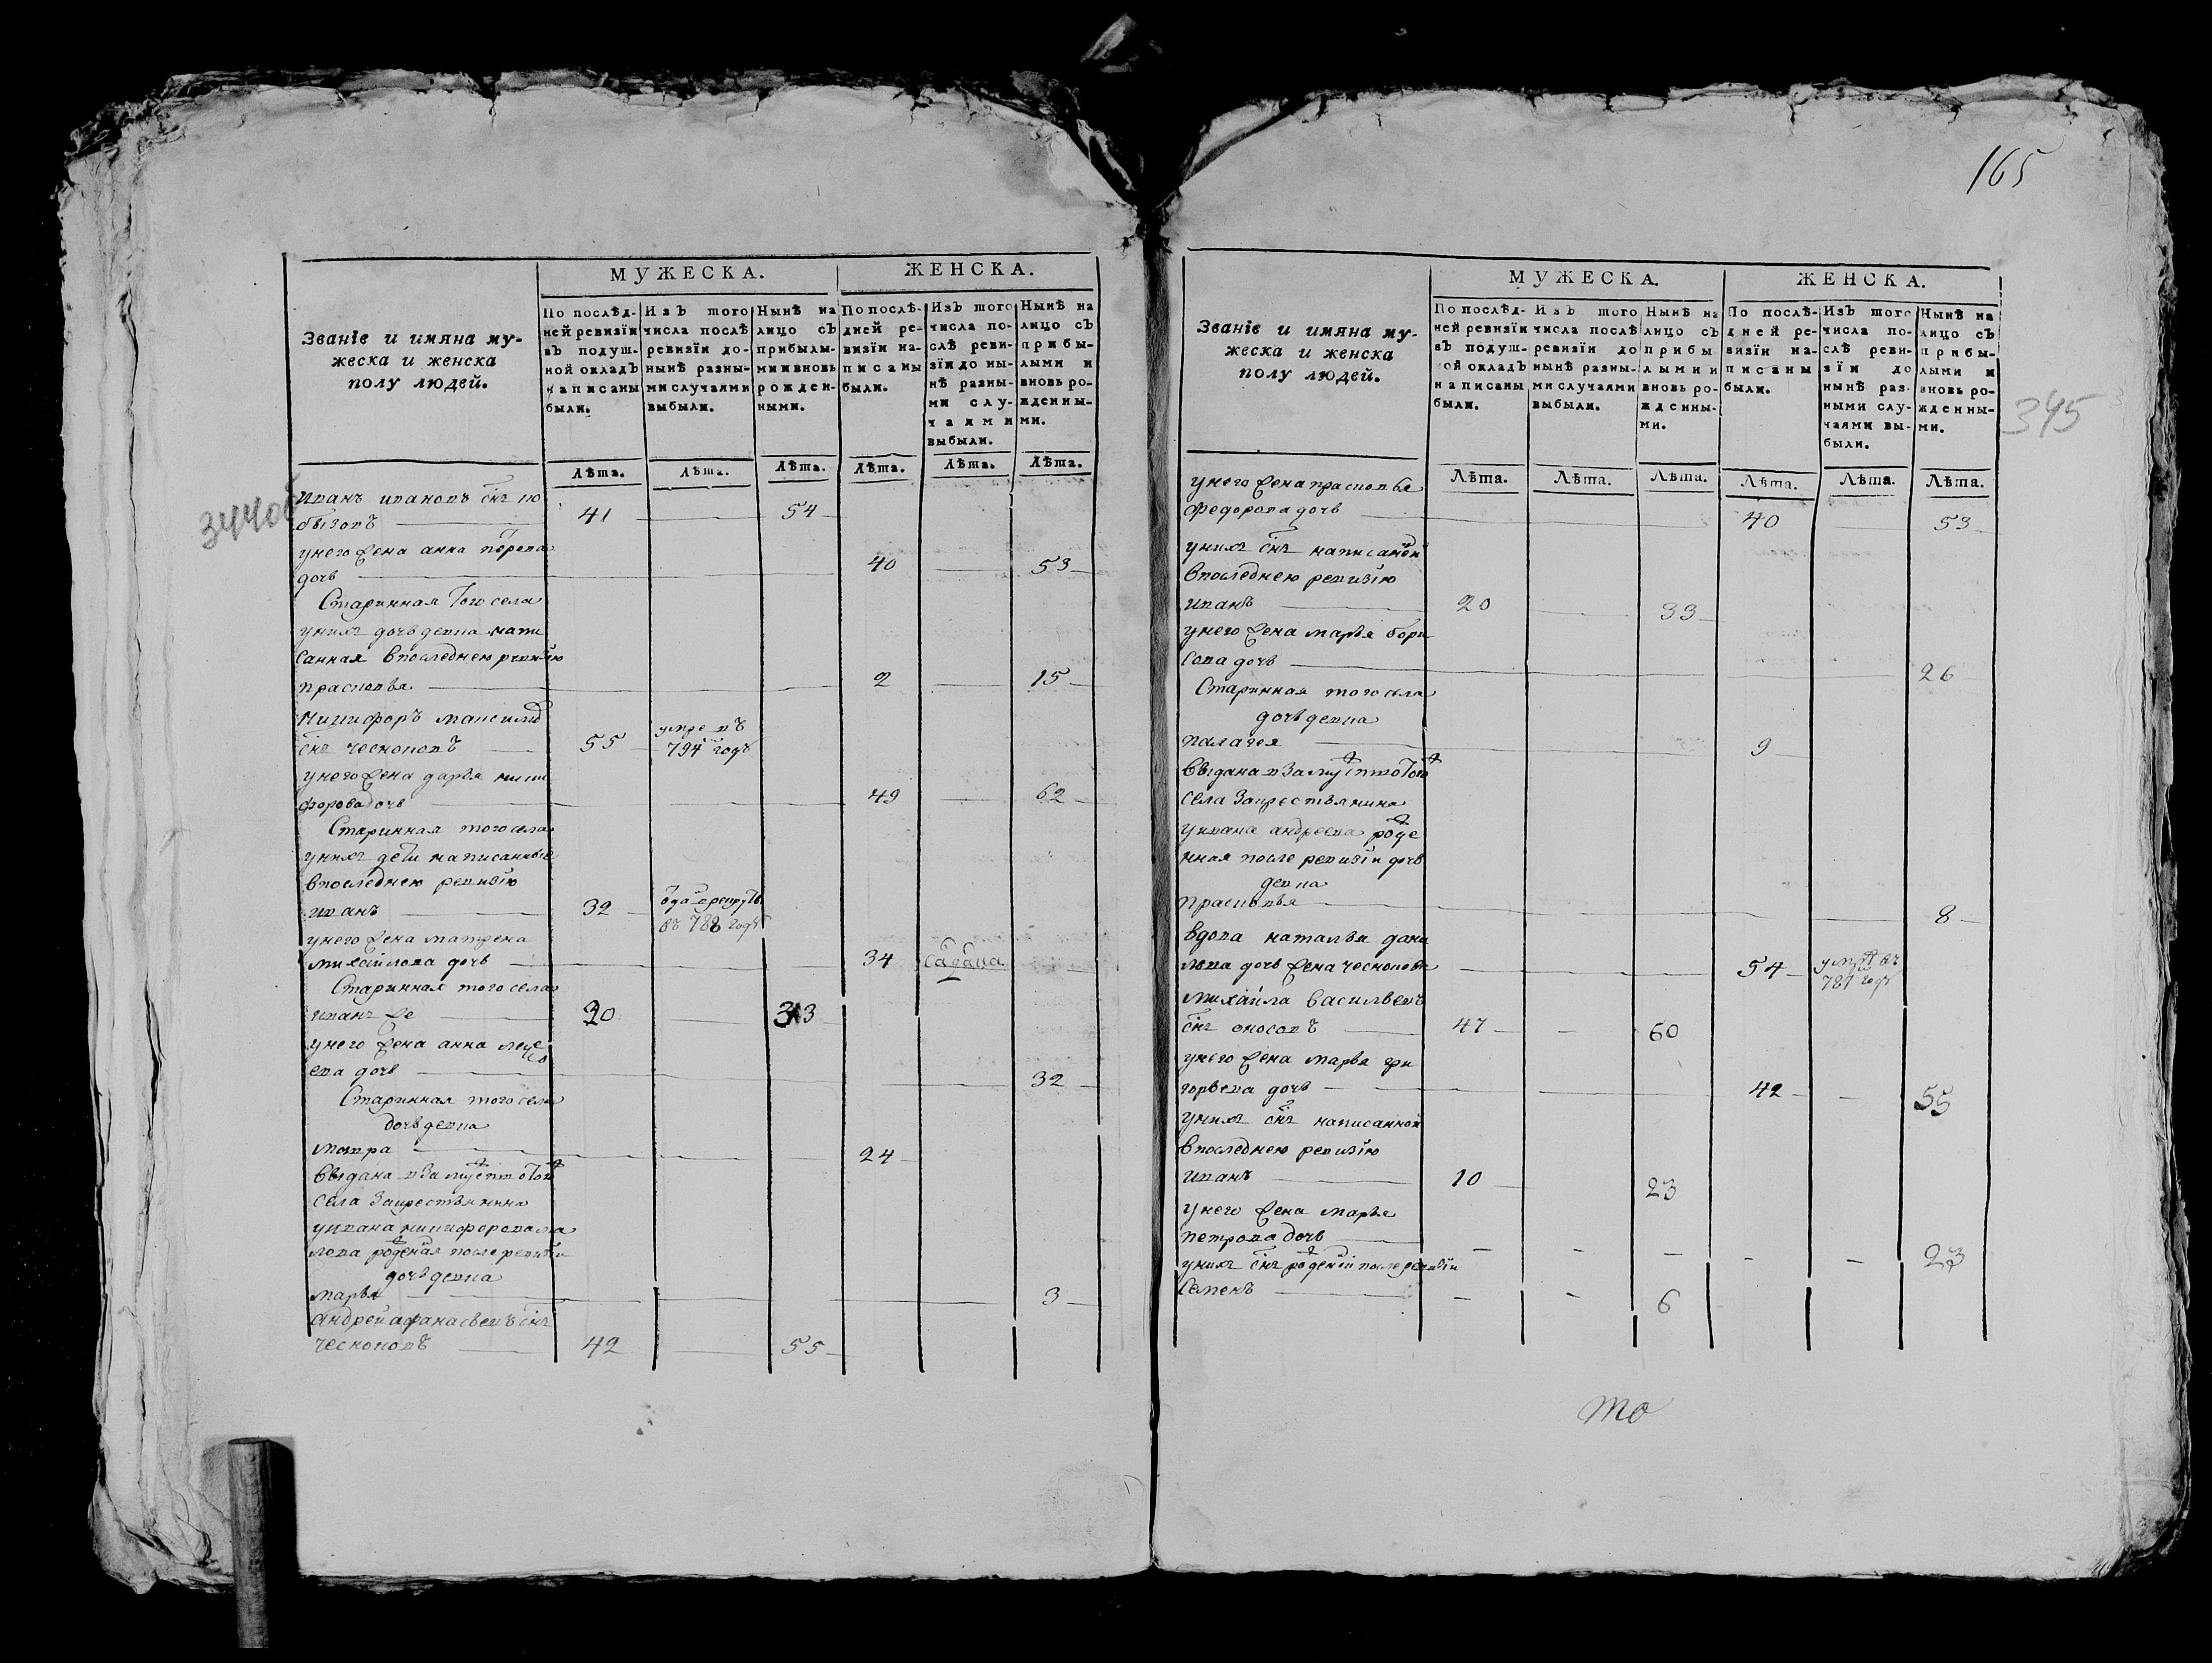 165
345
344об
МУЖЕСКА. ЖЕНСКА.
Званіе и имяна му-
жеска и женска
полу людей.
По послѣд-
ней ревизїи
въ подуш-
ной окладъ
написаны
были.
Изъ того
числа послѣ
ревизїи до-
нынѣ разны-
ми случаями
выбыли.
Нынѣ на
лицо съ
прибылы-
ми и вновь
рожден-
ными.
По послѣ-
дней ре-
визїи на-
писаны
были.
Изъ того
числа по-
слѣ реви-
зїи до ны-
нѣ разны-
ми слу-
чаями
выбыли.
Нынѣ на
лицо съ
прибы-
лыми и
вновь ро-
жденны-
ми.
Лѣта. Лѣта. Лѣта. Лѣта. Лѣта. Лѣта.
Иванъ ивановъ снъ ко
41 54
унего жена анна
дочь 40 53
Старинная того села
унихъ дочь девка напи
санная впоследнею ревизїю
прасковья 2 15
Никифоръ
снъ чесноковъ 55 умре въ 794 годе
унего жена дарья ники
форова дочь 49 62
Старинная того села
унихъ дети написанные
впоследнею ревизїю
иванъ 32 въ 788 годе
унего жена матрена
михайлова дочь 34
Старинная того села
иванъ же 20 33
унего жена анна
ева дочь 32
Старинная того села
дочь девка
24
выдана взамужство того
села закрестьянина
уивана никифорова
роженая после ревизїи
дочь девка
марья 3
андрей афанасьевъ снъ
чесноковъ 42 55
МУЖЕСКА. ЖЕНСКА.
Званіе и имяна му-
жеска и женска
полу людей.
По послѣд-
ней ревизїи
въ подуш-
ой окладъ
написаны
были.
Изъ того
числа послѣ
ревизїи до
нынѣ разны-
ми случаями
выбыли.
Нынѣ на
лицо съ
прибы
лыми и
вновь ро-
жденны-
ми.
По послѣ-
дней ре-
визїи на-
писаны
были.
Изъ того
числа по-
слѣ реви-
зїи до
нынѣ раз-
ными слу-
чаями вы-
были.
Нынѣ на
лицо съ
прибы-
лыми и
вновь ро-
жденны-
ми.
Лѣта. Лѣта. Лѣта. Лѣта. Лѣта. Лѣта.
унего жена прасковья
федорова дочь 40 53
унихъ снъ написанной
впоследнею ревизїю
иванъ 20 33
унего жена марья бори
сова дочь 26
Старинная того села
дочь девка
палагея 9
выдана взамужство того
села закрестьянина
уивана андреева роже
нная после ревизїи дочь
девка
прасковья 8
вдова наталья дани
лова дочь жена чеснокова 54 781 годе
михайла васильевъ
снъ оносовъ 47 60
унего жена марья гри
горьева дочь 42 55
унихъ снъ написанной
впоследнею ревизїю
иванъ 10 23
унего жена марья
петрова дочь 23
унихъ снъ роженой после ревизїи
Семенъ 6
то